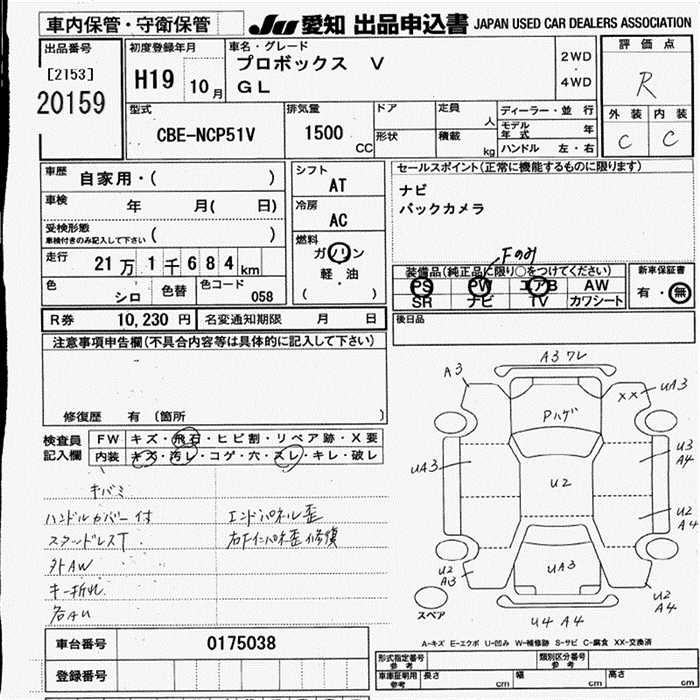 車内保管・守衛保管
JU 愛知 出品申込書 JAPAN USED CAR DEALERS ASSOCIATION
出品番号
[2153]
20159
初度登録年月
H19 10月
車名・グレード
プロボックス V
GL
2WD
・
4WD
評価点
R
外装 内装
C C
型式
CBE-NCP51V
排気量
1500 CC
ドア
形状
定員 人
積載 kg
ディーラー・並行
モデル年式 年
ハンドル 左・右
車歴 自家用・( )
車検 年 月( 日)
受検形態
車検付きのみ記入して下さい ( )
走行 21万1千684km
色 シロ 色替 色コード 058
シフト
AT
冷房
AC
燃料
ガソリン
軽・油
( )
セールスポイント(正常に機能するものに限ります)
ナビ
バックカメラ
Fのみ
装備品(純正品に限り○をつけてください)
PS PW エアB AW
SR ナビ TV カワシート
新車保証書
有・無
R券 10,230円 名変通知期限 月 日
後日品
注意事項申告欄(不具合内容等は具体的に記入して下さい)
修復歴 有 (箇所 )
検査員
記入欄
FW キズ・飛石・ヒビ割・リペア跡・X要
内装 キズ・汚レ・コゲ・穴・スレ・キレ・破レ
キバミ
ハンドルカバー付 エンドパネル歪
スタッドレスT 右Fインパネ歪修損
外AW
キー折れ
各AU
A3 ワレ
A3
XX UA3
Pハゲ
UA3
U2
U3
A4
U2
A4
UA3
U2
A3
U2
A4
スペア
U4 A4
A-キズ E-エクボ U-凹み W-補修跡 S-サビ C-腐食 XX-交換済
車台番号 0175038
登録番号
形式指定番号
参考
類別区分番号
参考
車庫証明用
参考
長さ cm 幅 cm 高さ cm